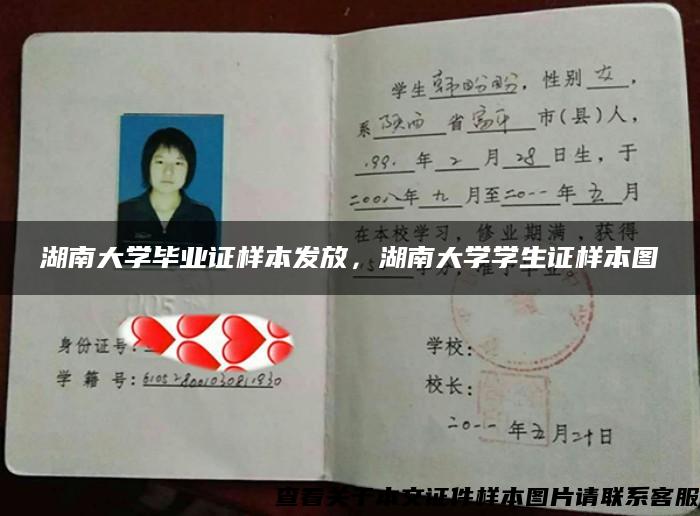 学生韩盼盼，性别女，
系陕西省富平市(县)人，
199.年2月28日生，于
二00八年九月至二0一一年五月
在本校学习，修业期满，获得
湖南大学毕业证样本发放，湖南大学学生证样本图
身份证号:
学籍号:
学校:
校长:
二0一一年五月二十日
查看关于本文证件样本图片请联系客服